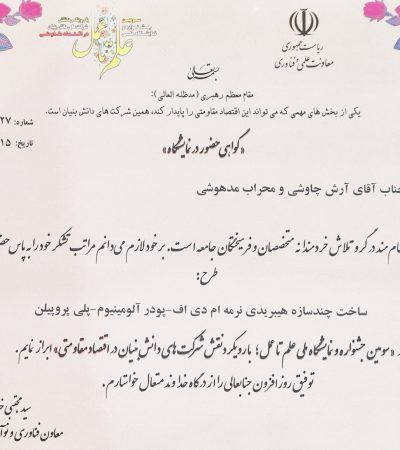 سومین
جشنواره و
نمایشگاه ملی
علم تا عمل
اقتصاد مقاومتی
ریاست جمهوری
معاونت علمی و فناوری
بسمه‌تعالی
مقام معظم رهبری (مدظله العالی):
یکی از بخش های مهمی که می تواند این اقتصاد مقاومتی را پایدار کند، همین شرکت های دانش بنیان است.
شماره: ۲۷
تاریخ: ۱۵
«گواهی حضور در نمایشگاه»
جناب آقای آرش چاوشی و محراب مدهوشی
مند در گرو تلاش خردمندانه متخصصان و فرهیختگان جامعه است. بر خود لازم می دانم مراتب تشکر خود را به پاس
طرح:
ساخت چندسازه هیبریدی نرمه ام دی اف-پودر آلومینیوم-پلی پروپیلن
«سومین جشنواره و نمایشگاه ملی علم تا عمل؛ با رویکرد نقش شرکت های دانش بنیان در اقتصاد مقاومتی» ابراز نمایم.
توفیق روز افزون جنابعالی را از درگاه خداوند متعال خواستارم.
سید مجتبی
معاون فناوری و